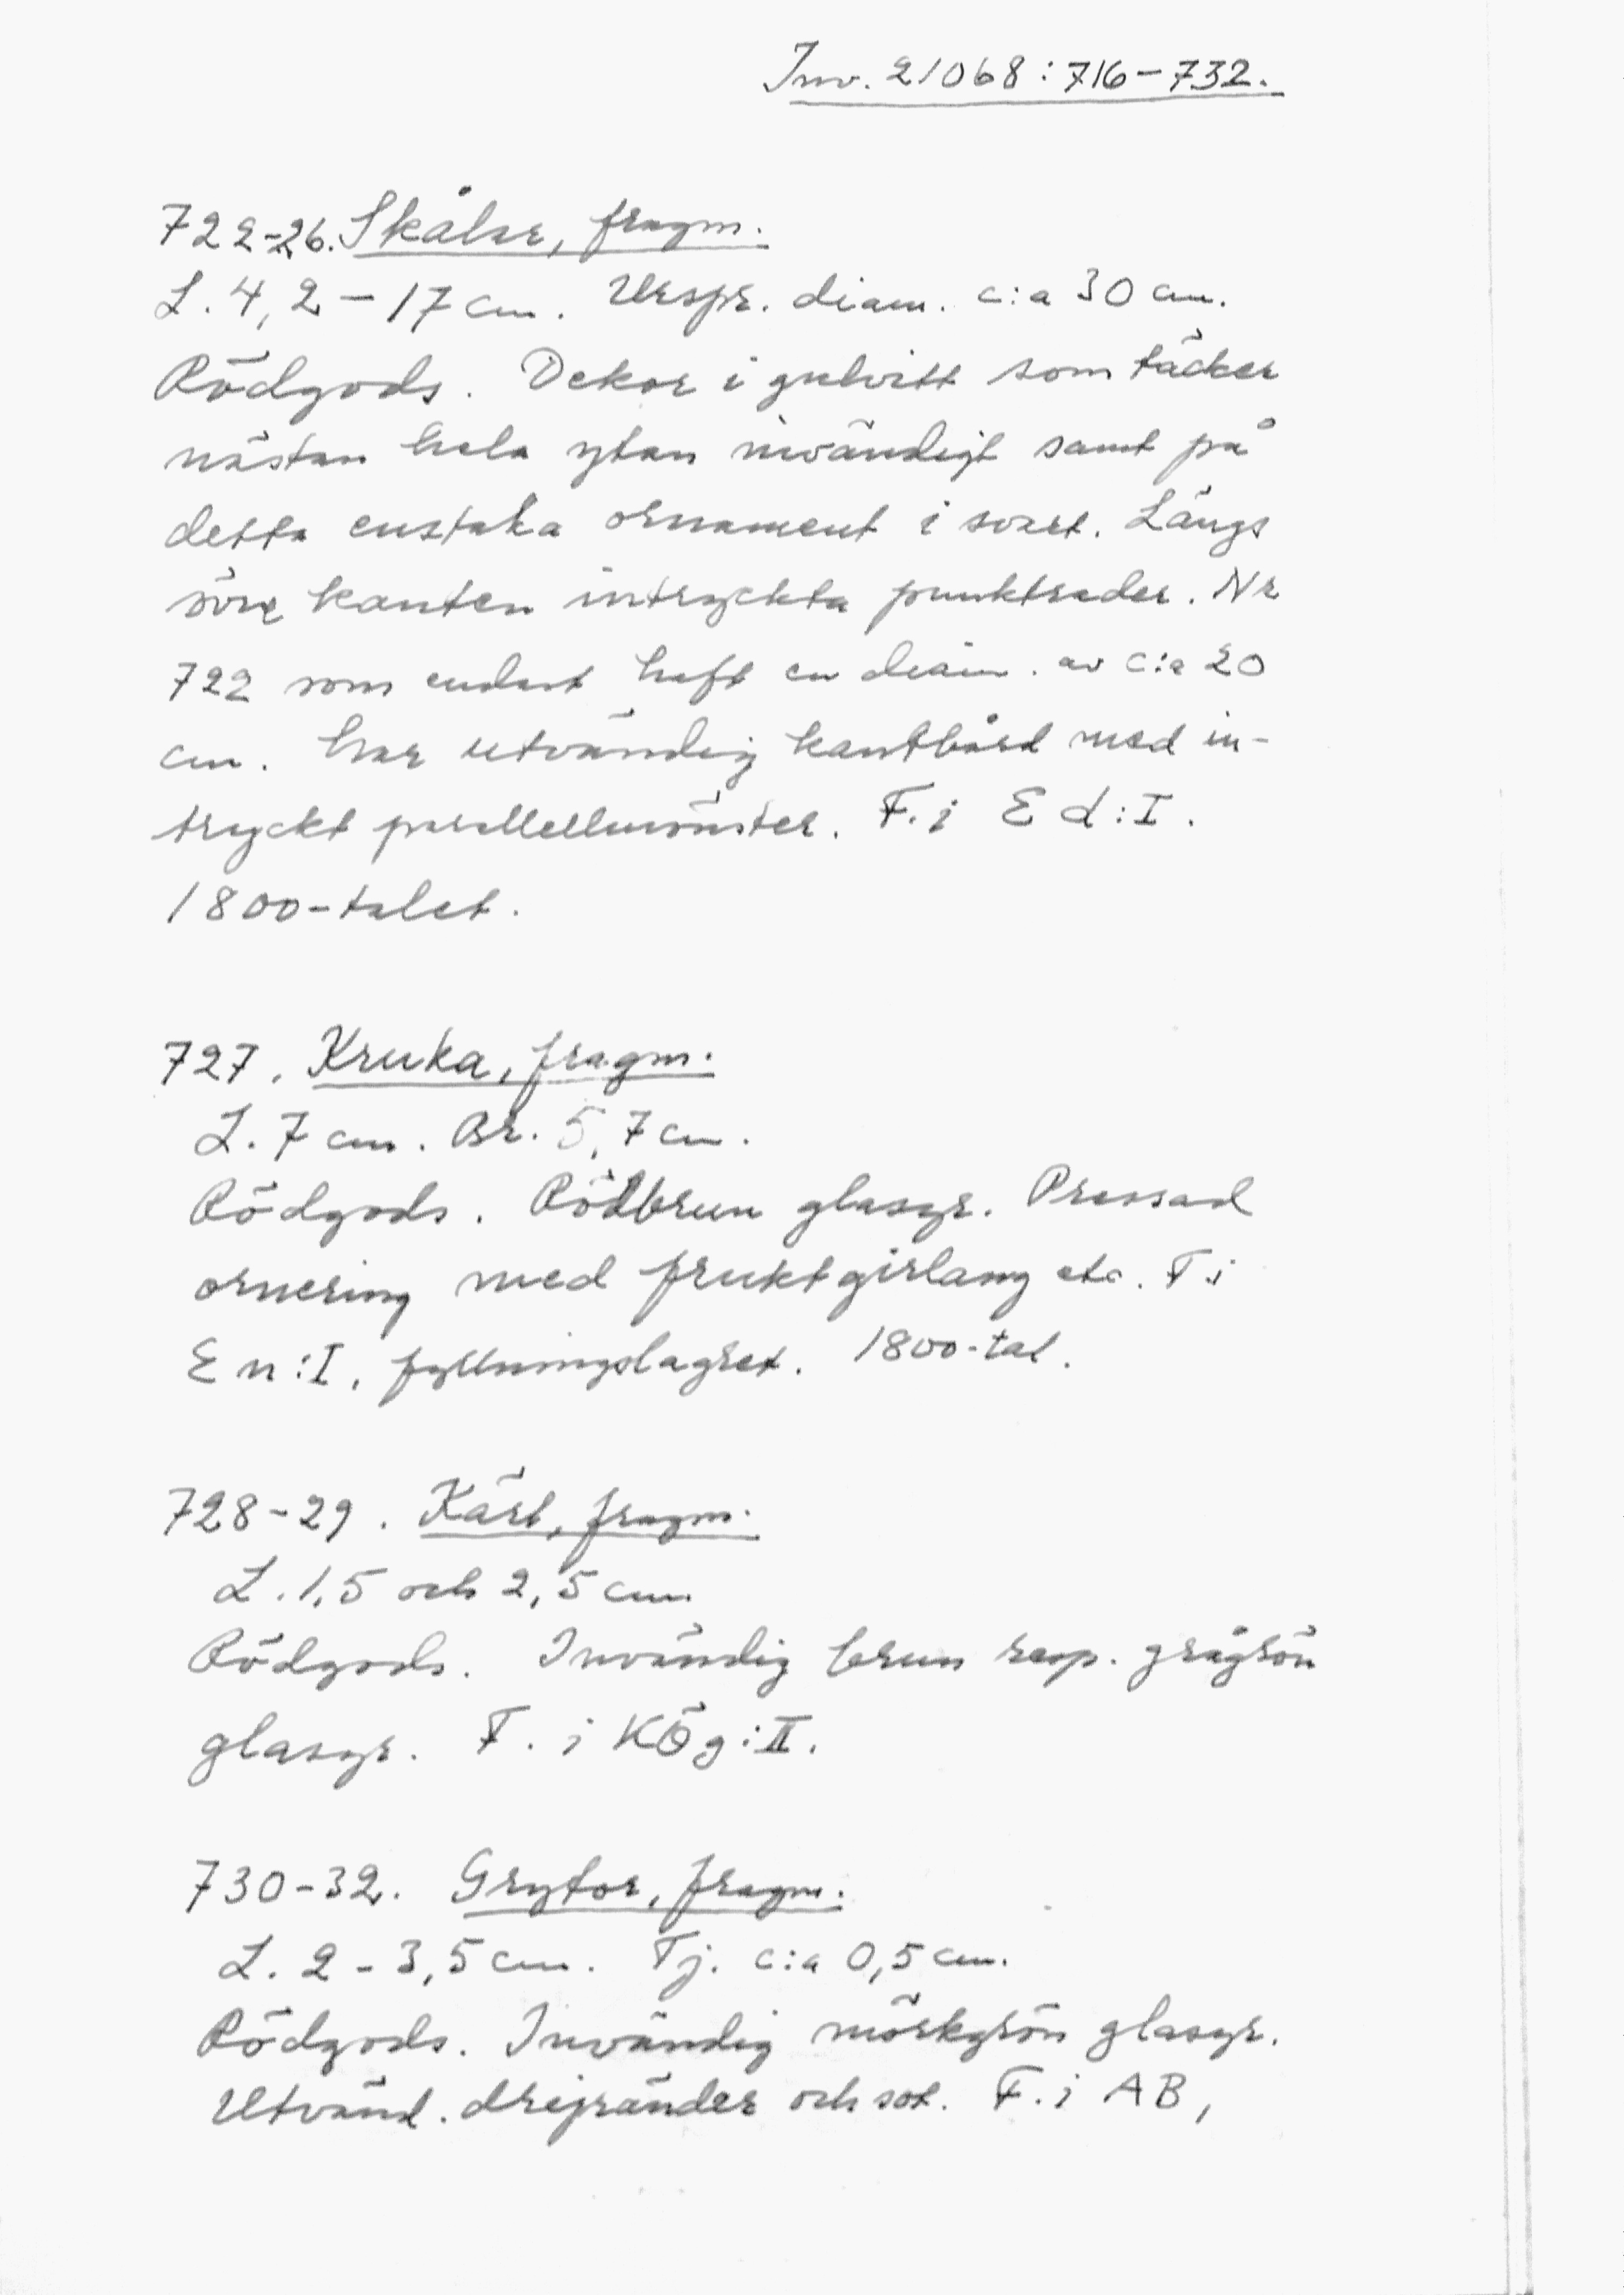 Inv. 21068:716-732.
722-26. Skålar, fragm.
L. 4,2-17 cm. Urspr. diam. c:a 30 cm.
Rödgods. Dekor i gulvitt som täcker
nästan hela ytan invändigt samt på
detta enstaka ornament i svart. Längs
övre kanten intryckta punktrader. Nr
722 som endast haft en diam. av c:a 20
cm. har utvändig kantbård med in-
tryckt parallellmönster. F. i Ed:I.
1800-talet.
727. Kruka, fragm.
L. 7 cm. Br. 5,7 cm.
Rödgods. Rödbrun glasyr. Pressad
ornering med fruktgirlang etc. F i
En:I, fyllningslagret. 1800-tal.
728-29. Kärl, fragm.
L. 1,5 och 2,5 cm
Rödgods. Invändig brun resp. grågrön
glasyr. F. i KÖg:II.
730-32. Grytor, fragm.
L. 2-3,5 cm. Tj. c:a 0,5 cm.
Rödgods. Invändig mörkgrön glasyr.
Utvänd. drejränder och sot. F. i AB,